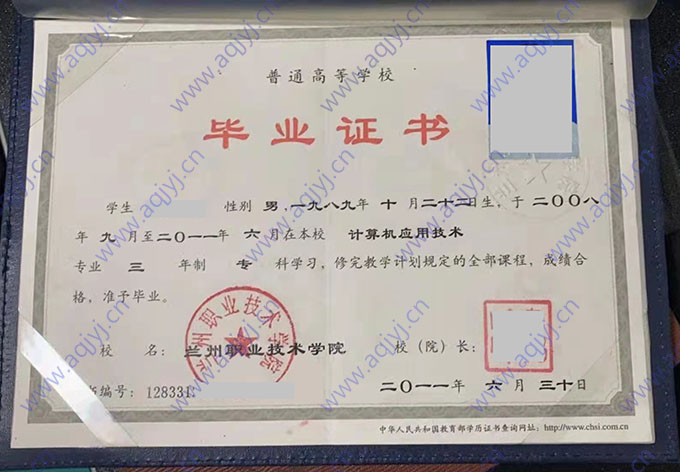 普通高等学校
毕业证书
学生 性别 男,一九八九年 十 月二十二日生,于 二〇〇八
年 九 月至二〇一一年 六 月在本校 计算机应用技术
专业 三 年制 专 科学习,修完教学计划规定的全部课程,成绩合
格,准予毕业。
兰州职业技术学院
校 名: 兰州职业技术学院 校(院)长:
编号: 128331
二〇一一年 六 月 三十日
中华人民共和国教育部学历证书查询网址: http://www.chsi.com.cn
www.aqjyj.cn